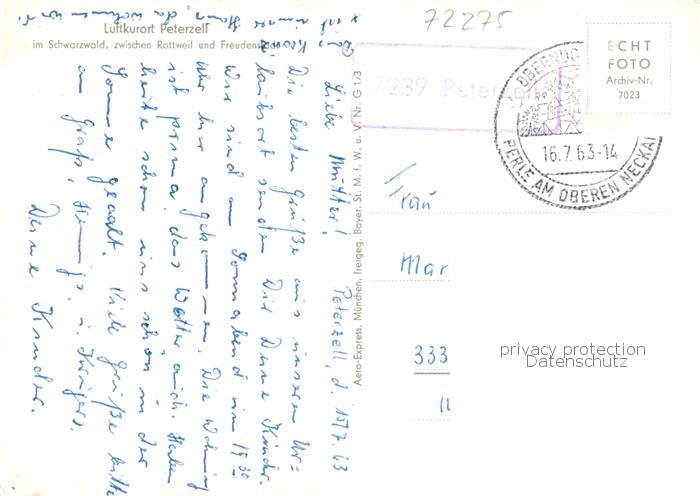 72275
Luftkurort Peterzell
im Schwarzwald, zwischen Rottweil und Freudenstadt
7239 Peterzell
ECHT
FOTO
Archiv-Nr.
7023
OBERNDO
16.7.63-14
PERLE AM OBEREN NECKAR
Aero-Express, München, freigeg. Bayer. St. M. f. W. u. V. Nr. G 1/3
Peterzell, d. 15.7.63
Liebe Mutter!
Die besten Grüße aus unserem Ur=
laubsort senden Dir Deine Kinder.
Wir sind am Sonnabend um 19 30
Uhr hier angekommen. Die Wohnung
ist prima, das Wetter auch. Haben
heute schon uns schön in der
Sonne geaalt. Viele Grüße bitte
an Hennigs u. Krügers.
Deine Kinder.
Frau
Mar
333
privacy protection
Datenschutz